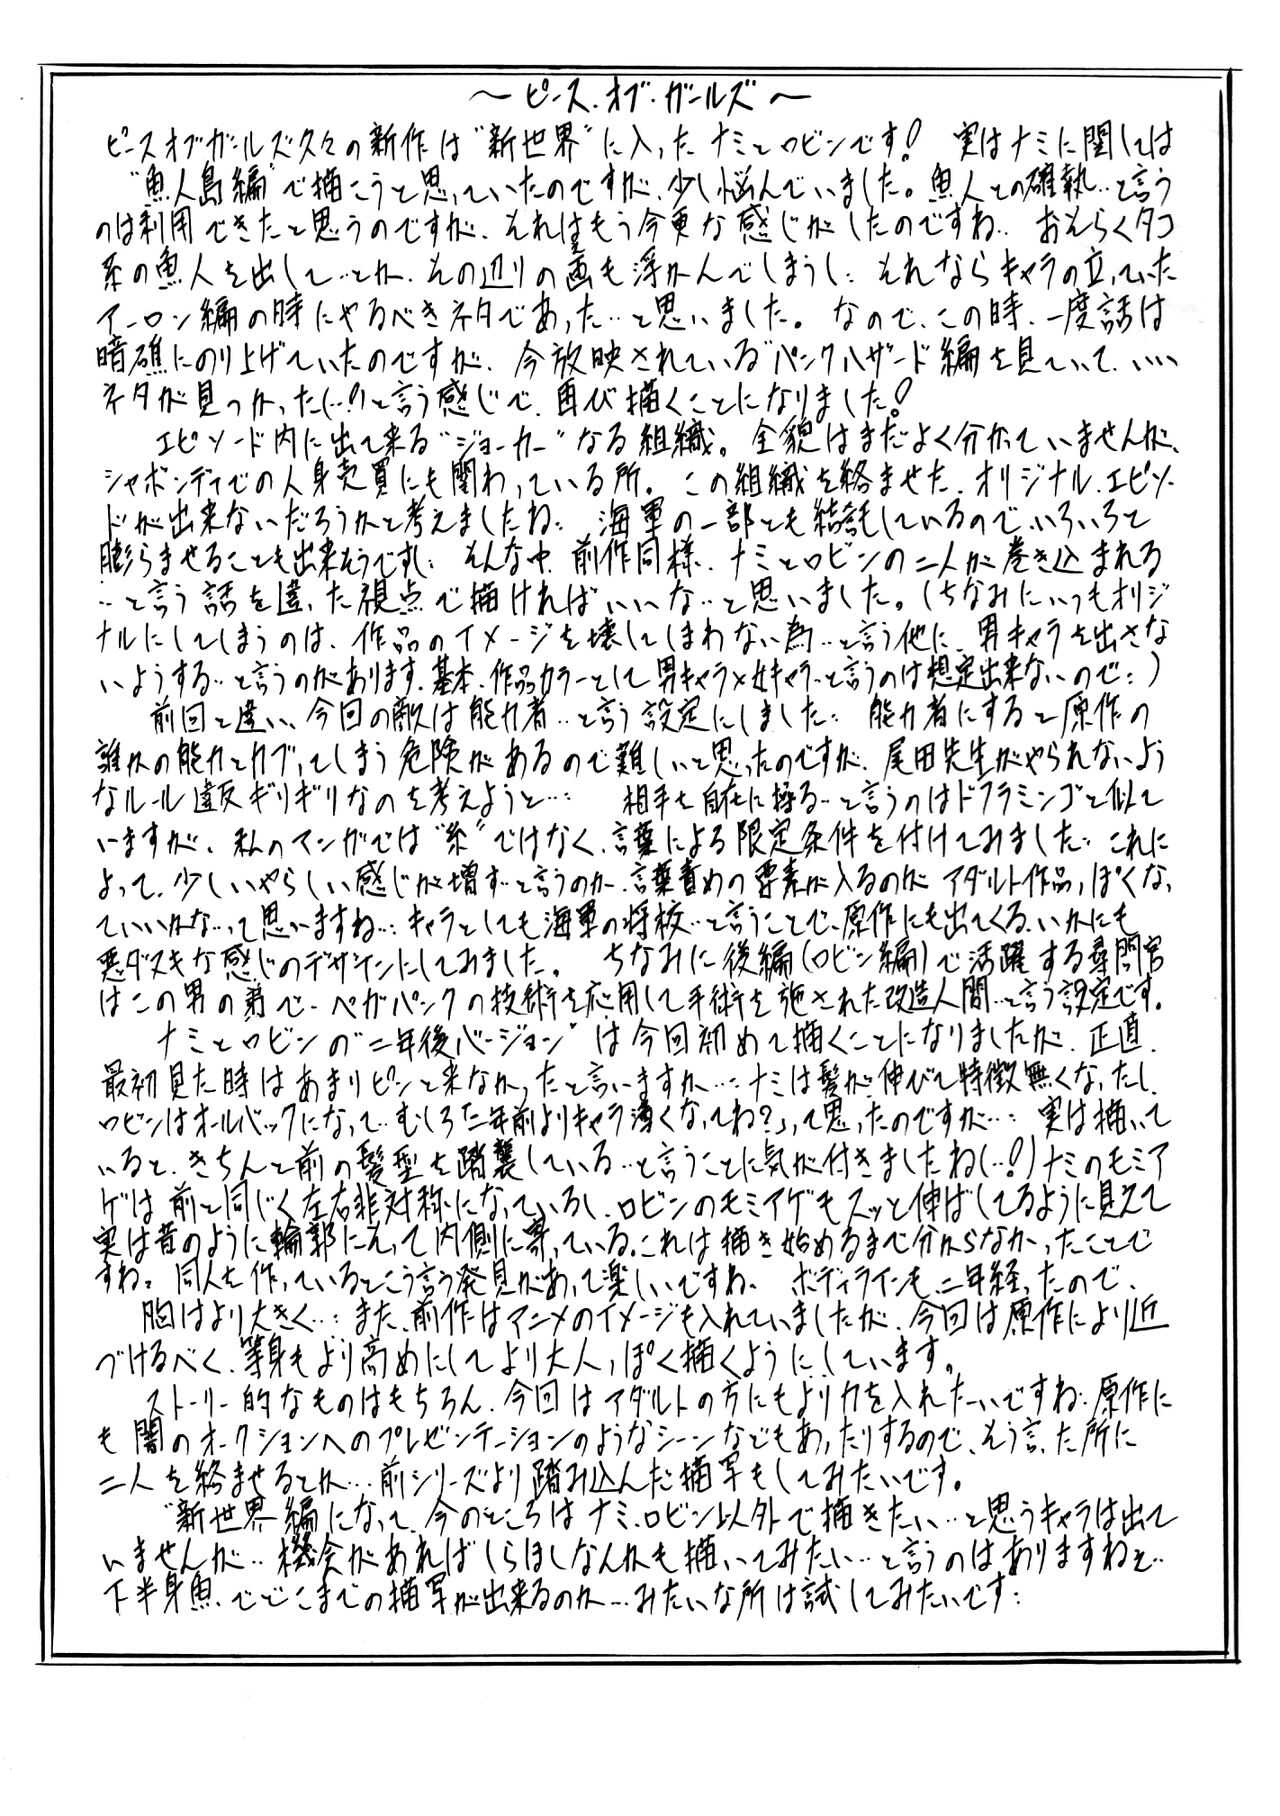 ～ピース・オブ・ガールズ～
ピースオブガールズ久々の新作は"新世界"に入ったナミとロビンです! 実はナミに関しては
"魚人島編"で描こうと思っていたのですが、少し悩んでいました。魚人との確執…と言う
のは利用できたと思うのですが、それはもう今更な感じがしたのですね… おそらくタコ
系の魚人を出して…とか、その辺りの画も浮かんでしまうし… それならキャラの立っていた
アーロン編の時にやるべきネタであった…と思いました。なので、この時、一度話は
暗礁にのり上げていたのですが、今放映されている"パンクハザード編を見ていて、…
ネタが見つかった(…!)と言う感じで、再び描くことになりました!
エピソード内に出て来る"ジョーカー"なる組織。全貌はまだよく分かっていませんが、
シャボンディでの人身売買にも関わっている所。この組織を絡ませた、オリジナル、エピソー
ドが出来ないだろうかと考えましたね… 海軍の一部とも結託しているので、いろいろと
膨らませることも出来そうですし… そんな中、前作同様、ナミとロビンの二人が巻き込まれる
…と言う話を違った視点で描ければいいな…と思いました。(ちなみにいつもオリジ
ナルにしてしまうのは、作品のイメージを壊してしまわない為…と言う他に、男キャラを出さな
いようする…と言うのがあります、基本、作品カラーとして男キャラ×女キャラ…と言うのは想定出来ないので…)
前回と違い、今回の敵は能力者…と言う設定にしました… 能力者にすると原作の
誰かの能力とカブってしまう危険があるので難しいと思ったのですが、尾田先生がやられないよう
なルール違反ギリギリなのを考えようと…… 相手を自在に操る…と言うのはドフラミンゴと似て
いますが、私のマンガでは"糸"ではなく、言葉による限定条件を付けてみました… これに
よって、少しいやらしい感じが増す…と言うのか、言葉責めの要素が入るのが アダルト作品っぽくなっ
ていいかな…って思いますね…… キャラとしても海軍の将校…と言うことで、原作にも出てくる、いかにも
悪ダヌキな感じのデザインにしてみました。 ちなみに後編(ロビン編)で活躍する尋問官
はこの男の弟で、ベガパンクの技術を応用して手術を施された改造人間…と言う設定です。
ナミとロビンの"二年後バージョン"は今回初めて描くことになりましたが、正直、
最初見た時はあまりピンと来なかったと言いますか…… ナミは髪が伸びて特徴無くなったし、
ロビンはオールバックになって… むしろ「二年前よりキャラ薄くなってね?」って思ったのですが…… 実は描いて
いると、きちんと前の髪型を踏襲している…と言うことに気が付きましたね(…!) ナミのモミア
ゲは前と同じく左右非対称になっているし、ロビンのモミアゲもスッと伸ばしてるように見えて
実は昔のように輪郭にそって内側に寄っている。これは描き始めるまで分からなかったことで
すね。同人を作っているとこう言う発見があって楽しいですね、 ボディラインも、二年経ったので、
胸はより大きく…… また、前作はアニメのイメージも入れていましたが、今回は原作により近
づけるべく、等身もより高めにしてより大人っぽく描くようにしています。
ストーリー的なものはもちろん、今回はアダルトの方にもより力を入れたいですね… 原作に
も闇のオークションへのプレゼンテーションのようなシーンなどもあったりするので、そう言った所に
二人を絡ませるとか… 前シリーズより踏み込んだ描写もしてみたいです。
"新世界"編になって、今のところはナミ、ロビン以外で描きたい…と思うキャラは出て
いませんが… 機会があればしらほしなんかも描いてみたい…と言うのはありますねぇ…
下半身魚、でどこまでの描写が出来るのか…みたいな所は試してみたいです…